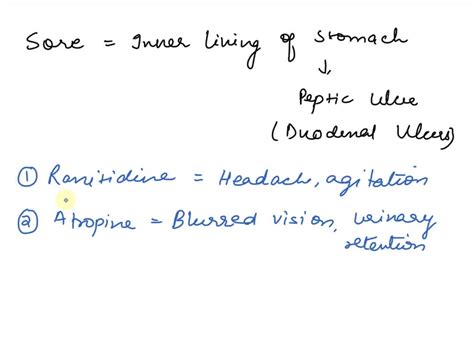 Sore = Inner Living of Stomach
↓
Peptic Ulce
(Duodenal Ulcers)
① Ranitidine = Headach, agitation
② Atropine = Blurred vision, urinary
retention